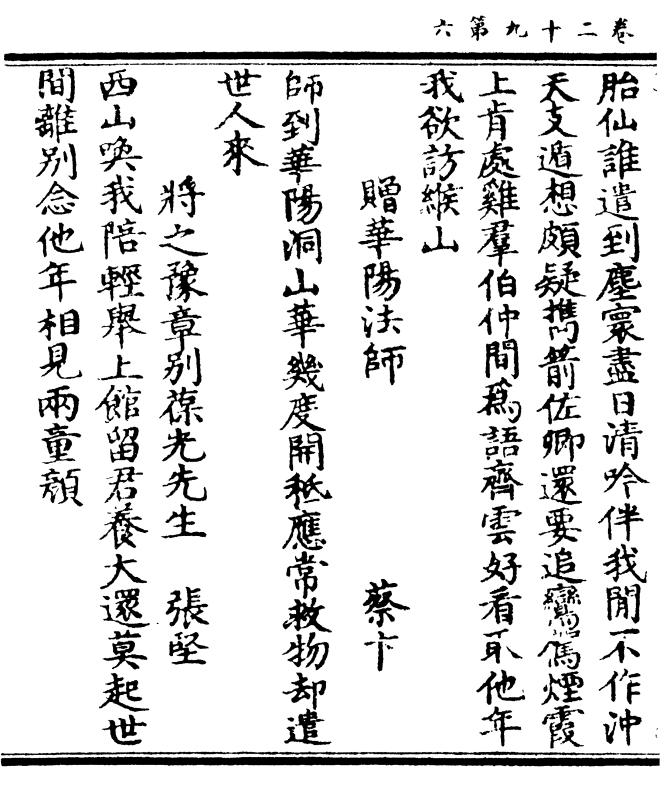 卷二十九第六
胎仙誰遣到塵寰盡日清吟伴我閒不作沖
天支遁想頗疑攜箭佐卿還要追鸞煙霞
上肯處雞羣伯仲間爲語齊雲好看取他年
我欲訪緱山
贈華陽法師　蔡卞
師到華陽洞山華幾度開秪應常救物却遣
世人來
將之豫章別葆光先生　張堅
西山喚我陪輕舉上館留君養大還莫起世
間離別念他年相見兩童顔